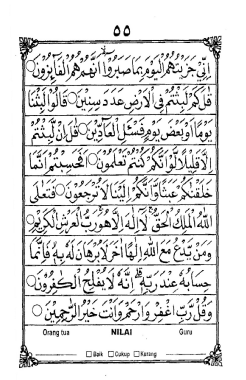 ٥٥
اِنِّيْ جَزَيْتُهُمُ الْيَوْمَ بِمَا صَبَرُوْٓا اَنَّهُمْ هُمُ الْفَآئِزُوْنَ
قٰلَ كَمْ لَبِثْتُمْ فِى الْاَرْضِ عَدَدَ سِنِيْنَ قَالُوْا لَبِثْنَا
يَوْمًا اَوْ بَعْضَ يَوْمٍ فَسْـَٔلِ الْعَآدِّيْنَ قٰلَ اِنْ لَّبِثْتُمْ
اِلَّا قَلِيْلًا لَّوْ اَنَّكُمْ كُنْتُمْ تَعْلَمُوْنَ اَفَحَسِبْتُمْ اَنَّمَا
خَلَقْنٰكُمْ عَبَثًا وَّاَنَّكُمْ اِلَيْنَا لَا تُرْجَعُوْنَ فَتَعٰلَى
اللّٰهُ الْمَلِكُ الْحَقُّ لَآ اِلٰهَ اِلَّا هُوَ رَبُّ الْعَرْشِ الْكَرِيْمِ
وَمَنْ يَّدْعُ مَعَ اللّٰهِ اِلٰهًا اٰخَرَ لَا بُرْهَانَ لَهٗ بِهٖ فَاِنَّمَا
حِسَابُهٗ عِنْدَ رَبِّهٖ ۗ اِنَّهٗ لَا يُفْلِحُ الْكٰفِرُوْنَ
وَقُلْ رَّبِّ اغْفِرْ وَارْحَمْ وَاَنْتَ خَيْرُ الرّٰحِمِيْنَ
Orang tua NILAI Guru
□ Baik □ Cukup □ Kurang